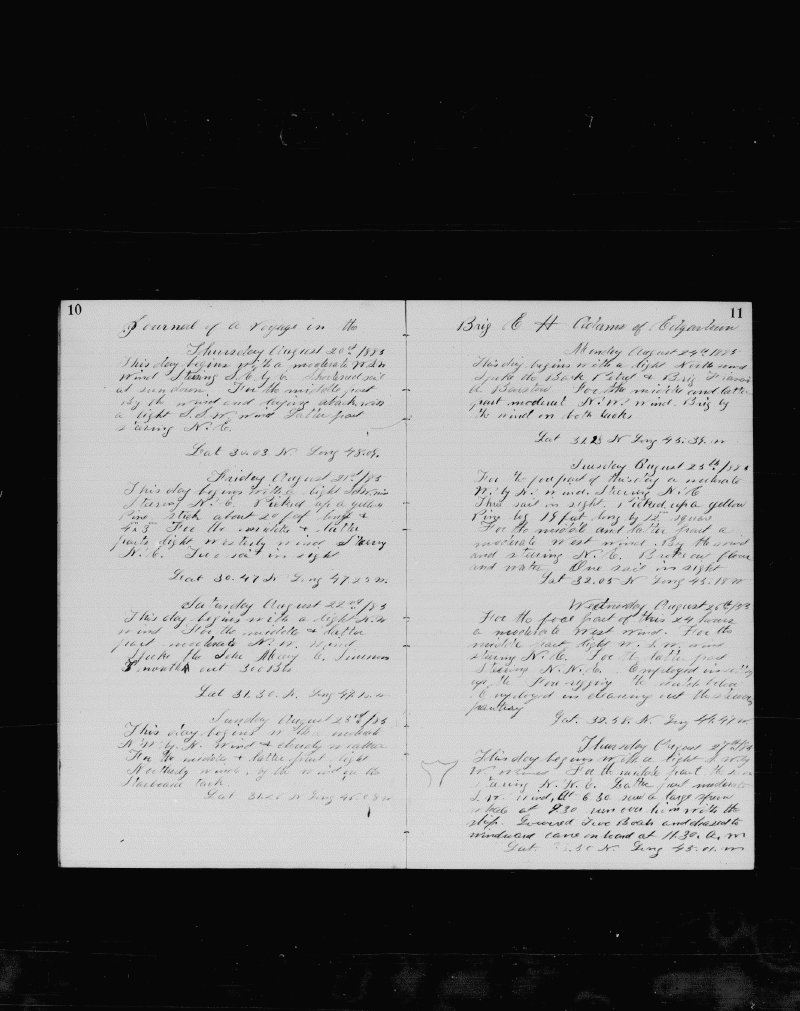 10
Journal of a Voyage in the
Thursday August 20th 1885
This day begins with a moderate
wind Steering S.E. by E. Shortened sail
at sun down. For the middle part
By the wind and laying aback with
a light S.S.W. wind Latter part
steering N.E.
Lat 30.03 N Long 48.09.
Friday August 21st /85
This day begins with a light
Steering N.E. Picked up a yellow
Pine stick about 20 feet long &
4x3 For the middle & latter
parts light westerly wind Steering
N.E. Two sail in sight
Lat 30.47 N Long 47.25 W.
Saturday August 22nd /85
This day begins with a light N.W
wind For the middle & latter
part moderate N.W. wind
Spoke the Schr
8 months out 300 Bbls
Lat 31.30 N. Long 47.12 W
Sunday August 23rd /85
This day begins with a moderate
N.W. by N. wind & cloudy weather
For the middle & latter part light
Northerly winds, by the wind on the
Starboard tack.
Lat 31.20 N Long
11
Brig E H Adams of Edgartown
Monday August 24th 1885
This day begins with a light North wind
Spoke the Bark & Brig
For the middle and latter
part moderate N.W. wind. Brig by
the wind on both tacks
Lat 31.23 N Long 45.39. W
Tuesday August 25th /85
For the fore part of this day a moderate
N. by W. wind. Steering N.E
Three sail in sight. Picked up a yellow
Pine log 19 feet long by 12 in square
For the middle and latter part a
moderate West wind. By the wind
and steering N.E. Broke out flour
and water One sail in sight
Lat 32.05 N Long 45.18 W
Wednesday August 26th /85
For the fore part of this 24 hours
a moderate West wind. For the
middle part light W.S.W. wind
steering N.E. For the latter part
Steering N.N.E. Employed in
up the Fore rigging the watch below
Employed in cleaning out the
pantry
Lat. 32.58. N Long 44.47 W.
Thursday August 27th /85
This day begins with a light S.W. by
W. winds For the middle part the same
steering N.N.E. Latter part moderate
S.W. wind, At 6.30 saw a large sperm
whale at 7.30 run over him with the
ship. Lowered Two Boats and chased to
windward came on board at 11.30. A.M
Lat. N Long 45.01. W